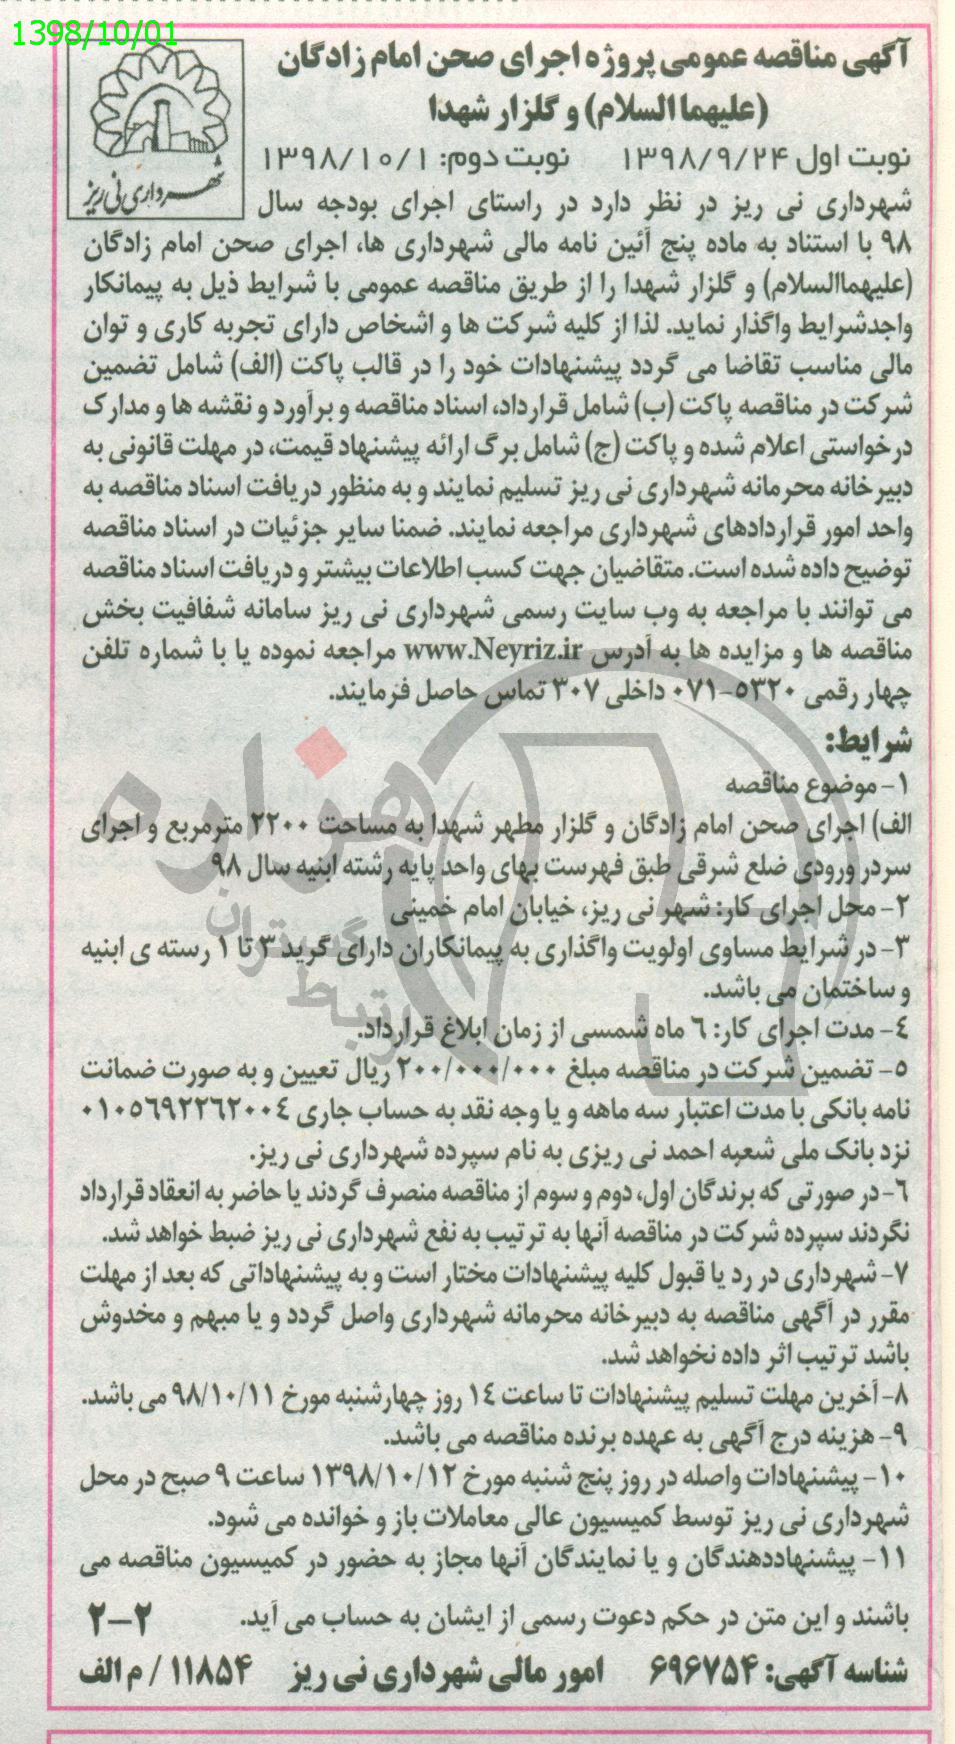 1398/10/01
آگهی مناقصه عمومی پروژه اجرای صحن امام زادگان
(علیهما السلام) و گلزار شهدا
نوبت اول ۱۳۹۸/۹/۲۴ نوبت دوم: ۱۳۹۸/۱۰/۱
شهرداری نی ریز
شهرداری نی ریز در نظر دارد در راستای اجرای بودجه سال
۹۸ با استناد به ماده پنج آئین نامه مالی شهرداری ها، اجرای صحن امام زادگان
(علیهماالسلام) و گلزار شهدا را از طریق مناقصه عمومی با شرایط ذیل به پیمانکار
واجدشرایط واگذار نماید. لذا از کلیه شرکت ها و اشخاص دارای تجربه کاری و توان
مالی مناسب تقاضا می گردد پیشنهادات خود را در قالب پاکت (الف) شامل تضمین
شرکت در مناقصه پاکت (ب) شامل قرارداد، اسناد مناقصه و برآورد و نقشه ها و مدارک
درخواستی اعلام شده و پاکت (ج) شامل برگ ارائه پیشنهاد قیمت، در مهلت قانونی به
دبیرخانه محرمانه شهرداری نی ریز تسلیم نمایند و به منظور دریافت اسناد مناقصه به
واحد امور قراردادهای شهرداری مراجعه نمایند. ضمنا سایر جزئیات در اسناد مناقصه
توضیح داده شده است. متقاضیان جهت کسب اطلاعات بیشتر و دریافت اسناد مناقصه
می توانند با مراجعه به وب سایت رسمی شهرداری نی ریز سامانه شفافیت بخش
مناقصه ها و مزایده ها به آدرس www.Neyriz.ir مراجعه نموده یا با شماره تلفن
چهار رقمی ۵۳۲۰-۰۷۱ داخلی ۳۰۷ تماس حاصل فرمایند.
شرایط:
۱- موضوع مناقصه
الف) اجرای صحن امام زادگان و گلزار مطهر شهدا به مساحت ۲۲۰۰ مترمربع و اجرای
سردر ورودی ضلع شرقی طبق فهرست بهای واحد پایه رشته ابنیه سال ۹۸
۲- محل اجرای کار: شهر نی ریز، خیابان امام خمینی
۳- در شرایط مساوی اولویت واگذاری به پیمانکاران دارای گرید ۳ تا ۱ رسته ی ابنیه
و ساختمان می باشد.
۴- مدت اجرای کار: ۶ ماه شمسی از زمان ابلاغ قرارداد.
۵- تضمین شرکت در مناقصه مبلغ ۲۰۰/۰۰۰/۰۰۰ ریال تعیین و به صورت ضمانت
نامه بانکی با مدت اعتبار سه ماهه و یا وجه نقد به حساب جاری ۰۱۰۵۶۹۲۲۶۲۰۰۴
نزد بانک ملی شعبه احمد نی ریزی به نام سپرده شهرداری نی ریز.
۶- در صورتی که برندگان اول، دوم و سوم از مناقصه منصرف گردند یا حاضر به انعقاد قرارداد
نگردند سپرده شرکت در مناقصه آنها به ترتیب به نفع شهرداری نی ریز ضبط خواهد شد.
۷- شهرداری در رد یا قبول کلیه پیشنهادات مختار است و به پیشنهاداتی که بعد از مهلت
مقرر در آگهی مناقصه به دبیرخانه محرمانه شهرداری واصل گردد و یا مبهم و مخدوش
باشد ترتیب اثر داده نخواهد شد.
۸- آخرین مهلت تسلیم پیشنهادات تا ساعت ۱۴ روز چهارشنبه مورخ ۹۸/۱۰/۱۱ می باشد.
۹- هزینه درج آگهی به عهده برنده مناقصه می باشد.
۱۰- پیشنهادات واصله در روز پنج شنبه مورخ ۱۳۹۸/۱۰/۱۲ ساعت ۹ صبح در محل
شهرداری نی ریز توسط کمیسیون عالی معاملات باز و خوانده می شود.
۱۱- پیشنهاددهندگان و یا نمایندگان آنها مجاز به حضور در کمیسیون مناقصه می
باشند و این متن در حکم دعوت رسمی از ایشان به حساب می آید. ۲-۲
شناسه آگهی: ۶۹۶۷۵۴ امور مالی شهرداری نی ریز ۱۱۸۵۴ / م الف
هزاره
گستران
ارتباط